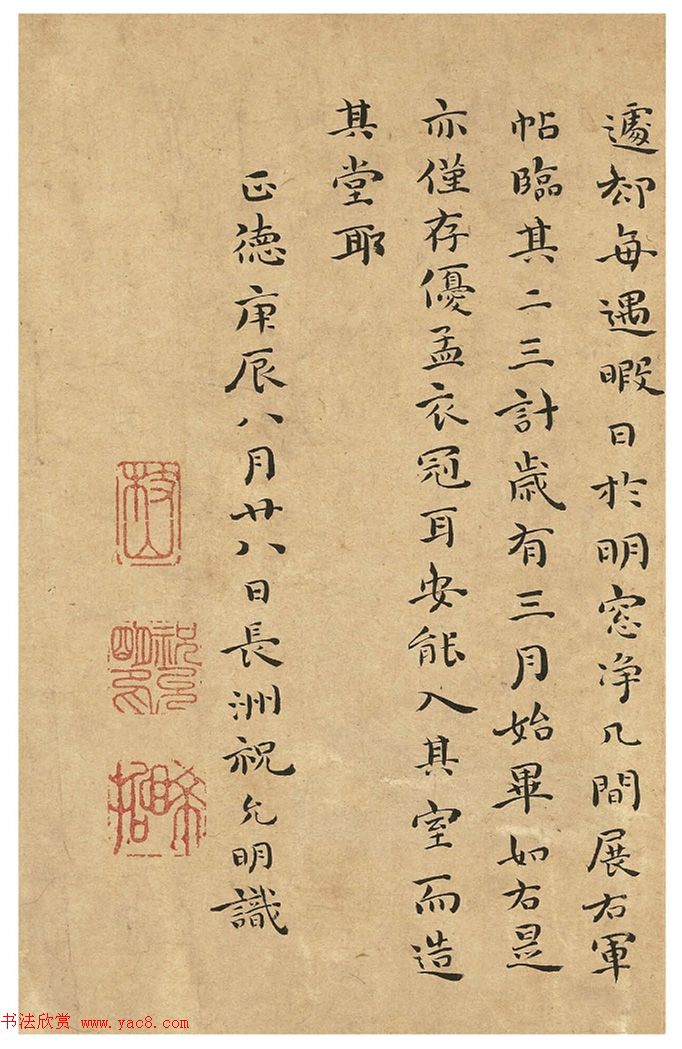 遽却每遇暇日於明窓净几間展右軍
帖臨其二三計歲有三月始畢如右是
亦僅存優孟衣冠耳安能入其室而造
其堂耶
正德庚辰八月廿八日長洲祝允明識
枝山
祝允明
晞哲
书法欣赏 www.yac8.com